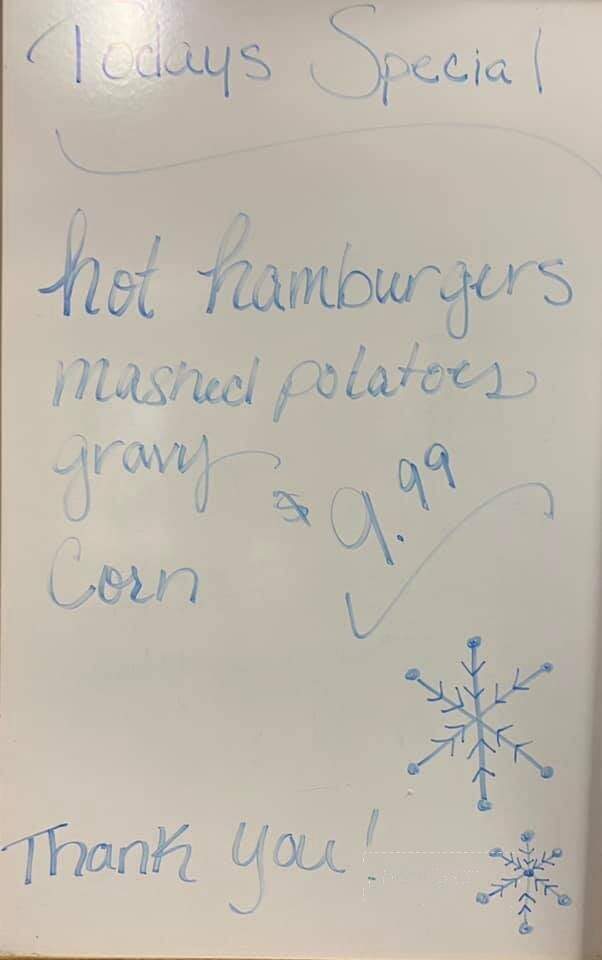 Todays Special
hot hamburgers
mashed potatoes
gravy
$9.99
Corn
Thank you!